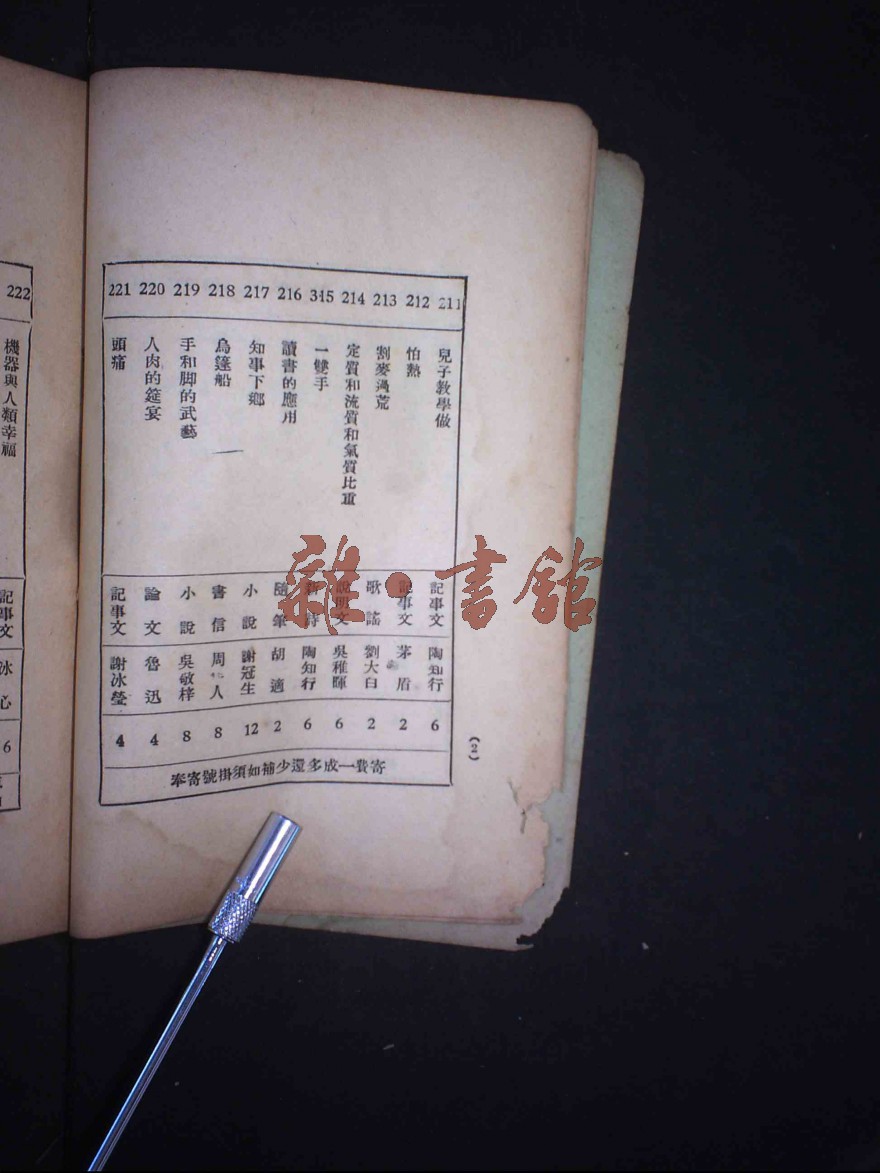 211 兒子敎學做 記事文 陶知行 6
212 怕熱 記事文 茅盾 2
213 割麥過荒 歌謠 劉大白 2
214 定質和流質和氣質比重 說明文 吳稚暉 6
345 一雙手 新詩 陶知行 6
216 讀書的應用 隨筆 胡適 2
217 知事下鄉 小說 謝冠生 12
218 烏篷船 書信 周 人 8
219 手和脚的武藝 小說 吳敬梓 8
220 人肉的筵宴 論文 魯迅 4
221 頭痛 記事文 謝冰瑩 4
寄費一成多還少補如須掛號寄奉
(2)
222 機器與人類幸福 記事文 冰心 6
雜·書館